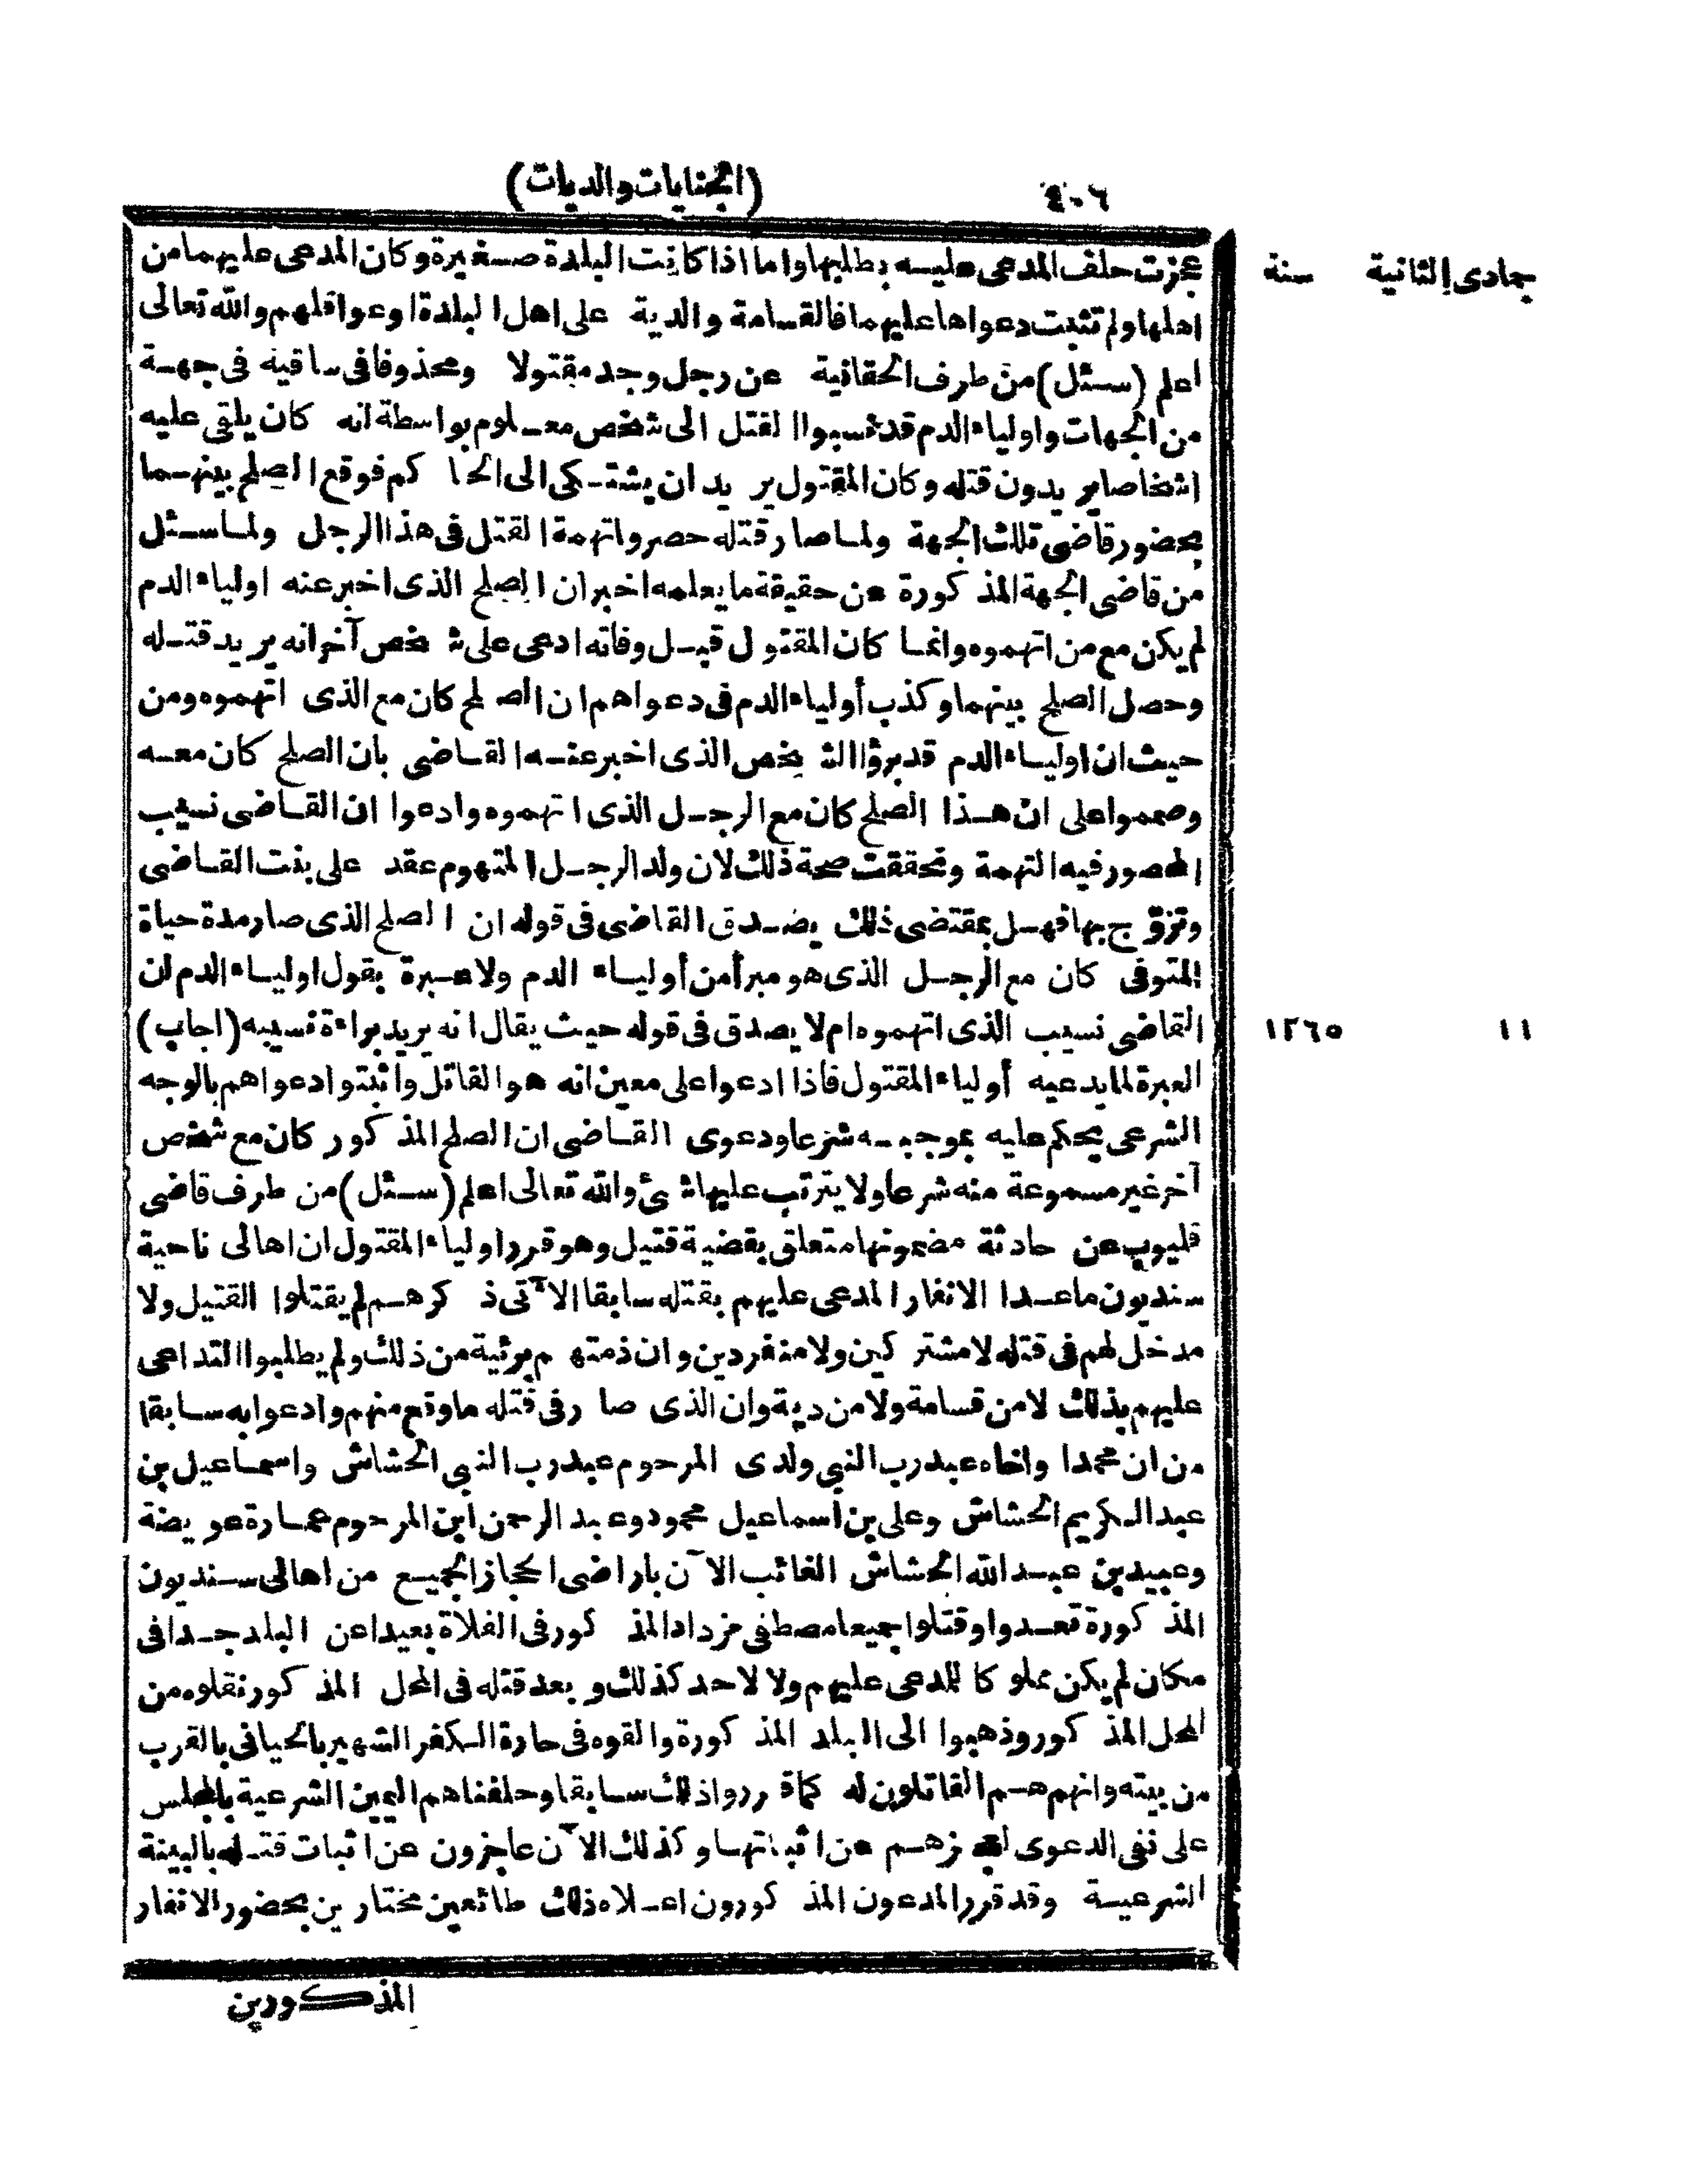 ٤٠٦ (الجنايات والديات)
جمادى الثانية سنة
عجزت حلف المدعى عليه بطلبها واما اذا كانت البلدة صغيرة وكان المدعى عليهما من
اهلها ولم تثبت دعواها عليهما فالقسامة والدية على اهل البلدة اوعواقلهم والله تعالى
اعلم (سئل) من طرف الحقانية عن رجل وجد مقتولا ومحذوفا فى ساقية فى جهة
من الجهات واولياء الدم قد نسبوا القتل الى شخص معلوم بواسطة انه كان يلقى عليه
اشخاصا يريدون قتله وكان المقتول يريد ان يشتكى الى الحاكم فوقع الصلح بينهما
بحضور قاضى تلك الجهة ولما صار قتله حصروا تهمة القتل فى هذا الرجل ولما سئل
من قاضى الجهة المذكورة عن حقيقة ما يعلمه اخبر ان الصلح الذى اخبر عنه اولياء الدم
لم يكن مع من اتهموه وانما كان المقتول قبل وفاته ادعى على شخص آخر انه يريد قتله
وحصل الصلح بينهما وكذب أولياء الدم فى دعواهم ان الصلح كان مع الذى اتهموه ومن
حيث ان اولياء الدم قد برؤا الشخص الذى اخبر عنه القاضى بان الصلح كان معه
وصمموا على ان هذا الصلح كان مع الرجل الذى اتهموه وادعوا ان القاضى نسيب
المحصور فيه التهمة وتحققت صحة ذلك لان ولد الرجل المتهوم عقد على بنت القاضى
وتزوّج بها فهل بمقتضى ذلك يصدق القاضى فى قوله ان الصلح الذى صار مدة حياة
المتوفى كان مع الرجل الذى هو مبرأ من أولياء الدم ولا عبرة بقول اولياء الدم ان
القاضى نسيب الذى اتهموه ام لا يصدق فى قوله حيث يقال انه يريد براءة نسيبه (اجاب)
١١ ١٢٦٥
العبرة لما يدعيه أولياء المقتول فاذا ادعوا على معين انه هو القاتل واثبتوا دعواهم بالوجه
الشرعى يحكم عليه بموجبه شرعا ودعوى القاضى ان الصلح المذكور كان مع شخص
آخر غير مسموعة منه شرعا ولا يترتب عليها شئ والله تعالى اعلم (سئل) من طرف قاضى
قليوب عن حادثة مضمونها متعلق بقضية قتيل وهو قرر اولياء المقتول ان اهالى ناحية
سنديون ما عدا الانفار المدعى عليهم بقتله سابقا الآتى ذكرهم لم يقتلوا القتيل ولا
مدخل لهم فى قتله لا مشتركين ولا منفردين وان ذمتهم بريئة من ذلك ولم يطلبوا التداعى
عليهم بذلك لا من قسامة ولا من دية وان الذى صار فى قتله ما وقع منهم وادعوا به سابقا
من ان محمدا واخاه عبد رب النبى ولدى المرحوم عبد رب النبى الحشاش واسماعيل بن
عبد الكريم الحشاش وعلى بن اسماعيل محمود وعبد الرحمن ابن المرحوم عمارة عويضة
وعبيد بن عبد الله الحشاش الغائب الآن باراضى الحجاز الجميع من اهالى سنديون
المذكورة تعدوا وقتلوا جميعا مصطفى مزداد المذكور فى الفلاة بعيدا عن البلد جدا فى
مكان لم يكن مملوكا للمدعى عليهم ولا لاحد كذلك وبعد قتله فى المحل المذكور نقلوه من
المحل المذكور وذهبوا الى البلد المذكورة والقوه فى حارة الكفر الشهير بالحيافى بالقرب
من بيته وانهم هم القاتلون له كما قرروا ذلك سابقا وحلفناهم اليمين الشرعية بالمجلس
على نفى الدعوى لعجزهم عن اثباتها وكذلك الآن عاجزون عن اثبات قتله بالبينة
الشرعية وقد قرر المدعون المذكورون اعلاه ذلك طائعين مختارين بحضور الانفار
المذكورين